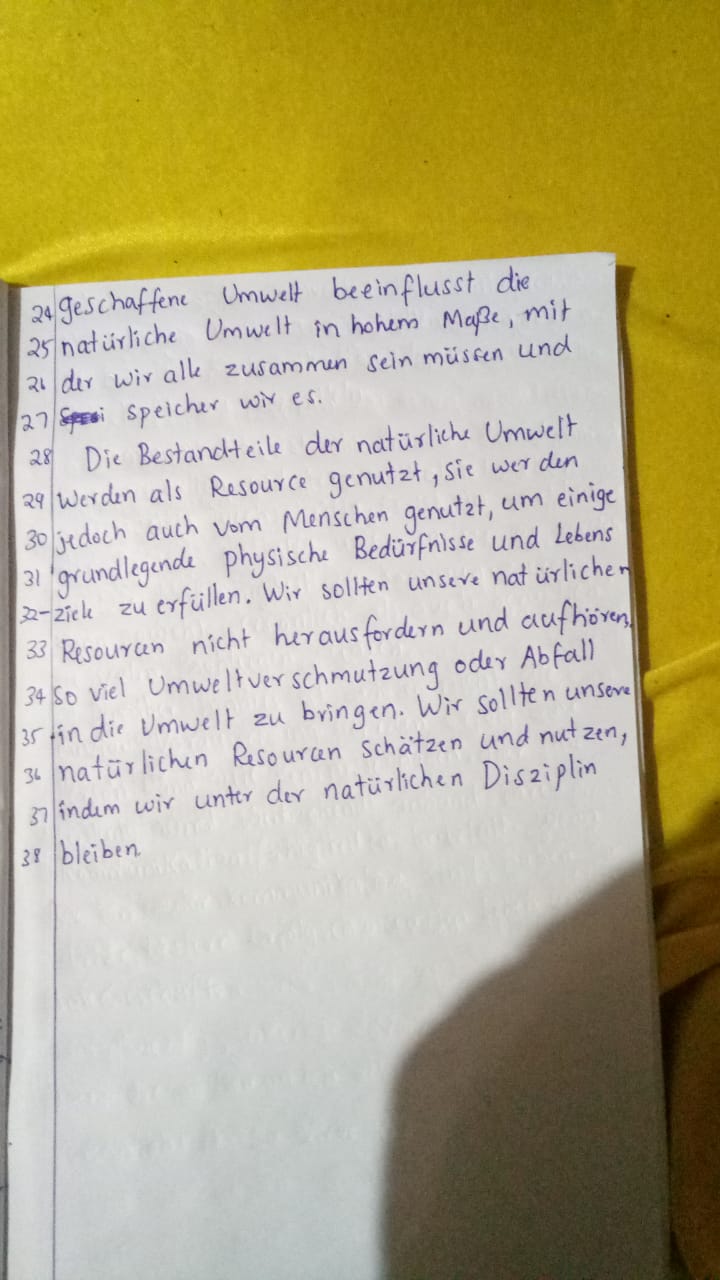 24 geschaffene Umwelt beeinflusst die
25 natürliche Umwelt in hohem Maße, mit
26 der wir alle zusammen sein müssen und
27 speicher wir es.
28 Die Bestandteile der natürliche Umwelt
29 Werden als Resource genutzt, sie werden
30 jedoch auch vom Menschen genutzt, um einige
31 grundlegende physische Bedürfnisse und Lebens
32-ziele zu erfüllen. Wir sollten unsere natürlichen
33 Resourcen nicht herausfordern und aufhören,
34 so viel Umweltverschmutzung oder Abfall
35 in die Umwelt zu bringen. Wir sollten unsere
36 natürlichen Resourcen schätzen und nutzen,
37 indem wir unter der natürlichen Disziplin
38 bleiben.